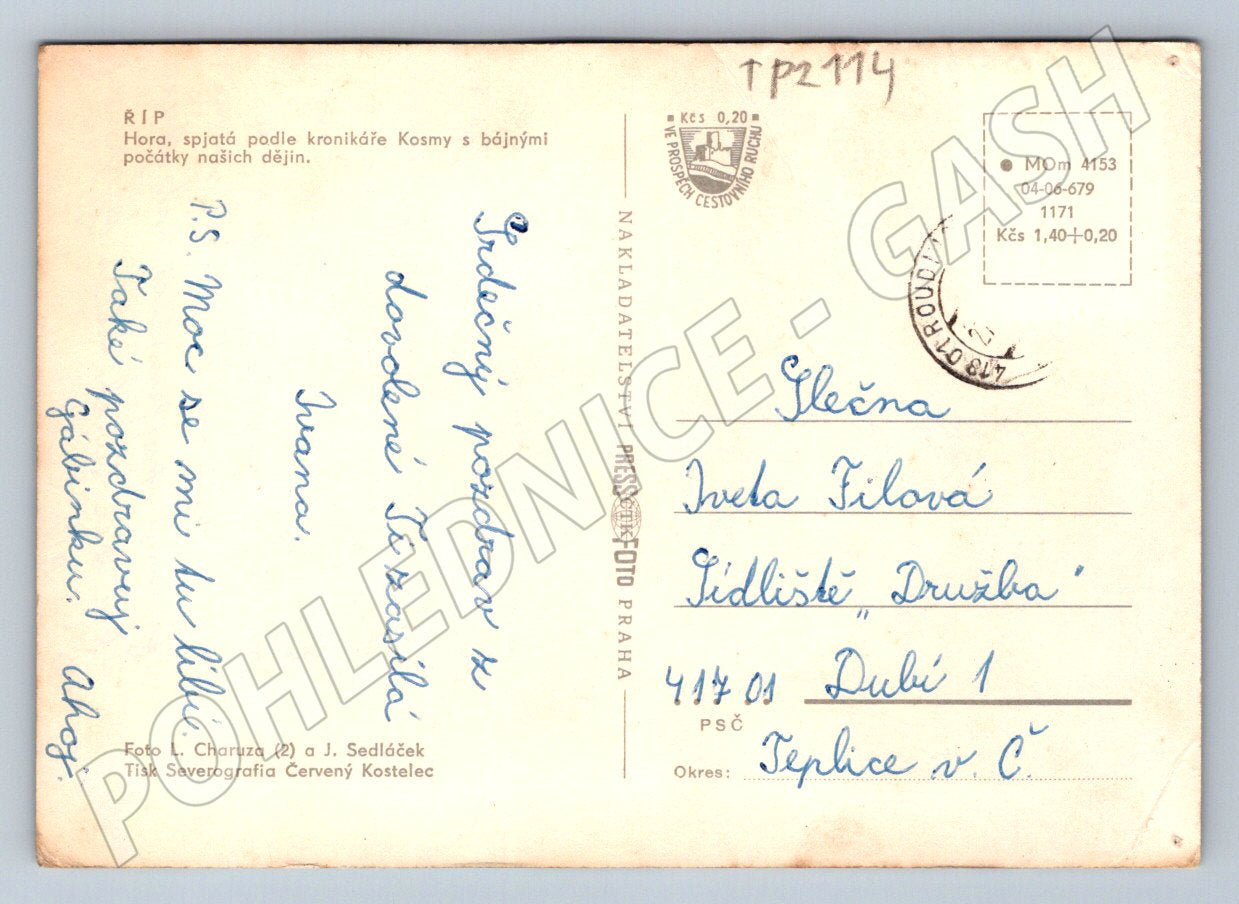 TP2114
ŘÍP
Hora, spjatá podle kronikáře Kosmy s bájnými
počátky našich dějin.
Srdečný pozdrav z
dovolené Ti zasílá
Ivana.
P.S. Moc se mi tu líbí.
Také pozdravuj
Gábinku. Ahoj.
Foto L. Charuza (2) a J. Sedláček
Tisk Severografia Červený Kostelec
NAKLADATELSTVÍ PRESSFOTO PRAHA
ČTK
Kčs 0,20
VE PROSPĚCH CESTOVNÍHO RUCHU
MOm 4153
04-06-679
1171
Kčs 1,40+0,20
413 01 ROUDN
Slečna
Iveta Filová
Sídliště „Družba"
417 01 Dubí 1
PSČ
Okres: Teplice v. Č.
POHLEDNICE - GASH